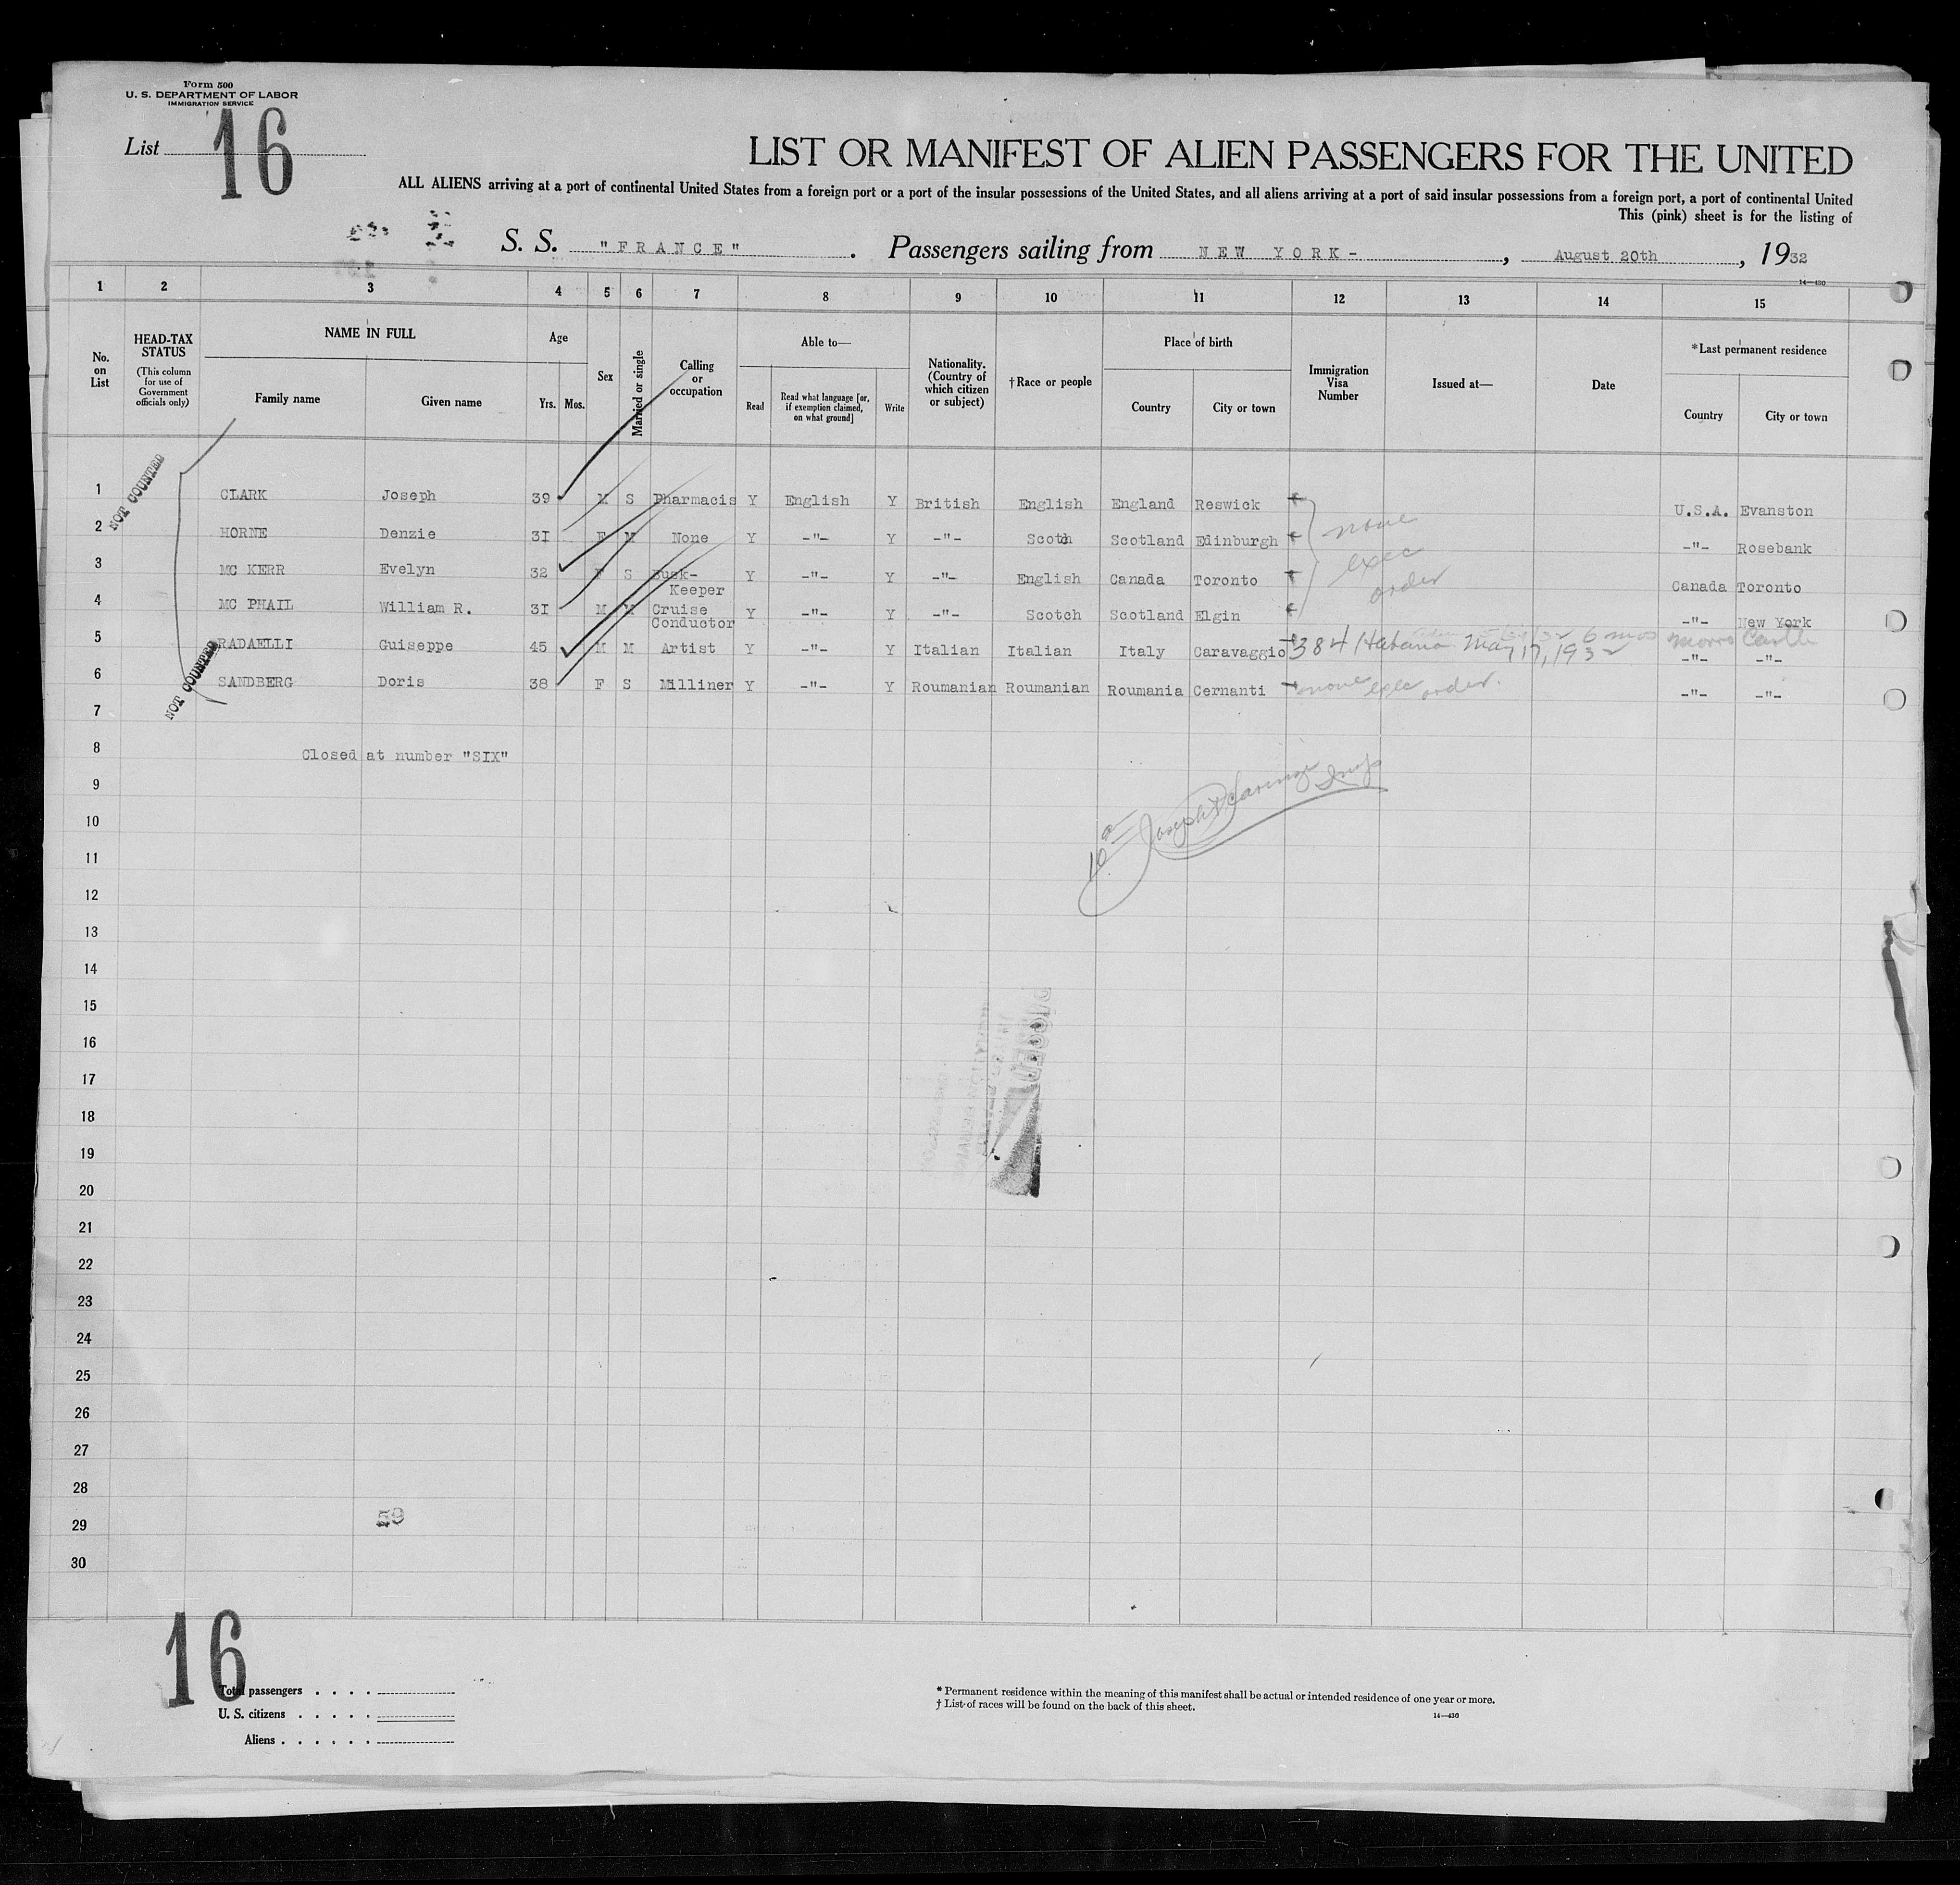 Form 500
U. S. DEPARTMENT OF LABOR
IMMIGRATION SERVICE
List 16
LIST OR MANIFEST OF ALIEN PASSENGERS FOR THE UNITED
ALL ALIENS arriving at a port of continental United States from a foreign port or a port of the insular possessions of the United States, and all aliens arriving at a port of said insular possessions from a foreign port, a port of continental United
This (pink) sheet is for the listing of
S. S. "FRANCE". Passengers sailing from NEW YORK-, August 20th, 1932
14—430
1 2 3 4 5 6 7 8 9 10 11 12 13 14 15
No. on List
HEAD-TAX STATUS
(This column for use of Government officials only)
NAME IN FULL
Family name
Given name
Age
Yrs. Mos.
Sex
Married or single
Calling or occupation
Able to—
Read
Read what language [or, if exemption claimed, on what ground]
Write
Nationality. (Country of which citizen or subject)
†Race or people
Place of birth
Country
City or town
Immigration Visa Number
Issued at—
Date
*Last permanent residence
Country
City or town
NOT COUNTED
1 CLARK Joseph 39 M S Pharmacis Y English Y British English England Reswick U.S.A. Evanston
2 HORNE Denzie 3I F M None Y -"- Y -"- Scoth Scotland Edinburgh -"- Rosebank
3 MC KERR Evelyn 32 F S Buek-Keeper Y -"- Y -"- English Canada Toronto Canada Toronto
4 MC PHAIL William R. 3I M M Cruise Conductor Y -"- Y -"- Scotch Scotland Elgin -"- New York
none
exec
order
5 RADAELLI Guiseppe 45 M M Artist Y -"- Y Italian Italian Italy Caravaggio 384 Habana May 17, 1932 6 mos Morro Castle -"- -"-
6 SANDBERG Doris 38 F S Milliner Y -"- Y Roumanian Roumanian Roumania Cernanti none exec order. -"- -"-
NOT COUNTED
7
8 Closed at number "SIX"
9
10
11
12
13
14
15
16
17
18
19
20
21
22
23
24
25
26
27
28
29
59
30
16
Total passengers
U. S. citizens
Aliens
* Permanent residence within the meaning of this manifest shall be actual or intended residence of one year or more.
† List of races will be found on the back of this sheet.
14—430